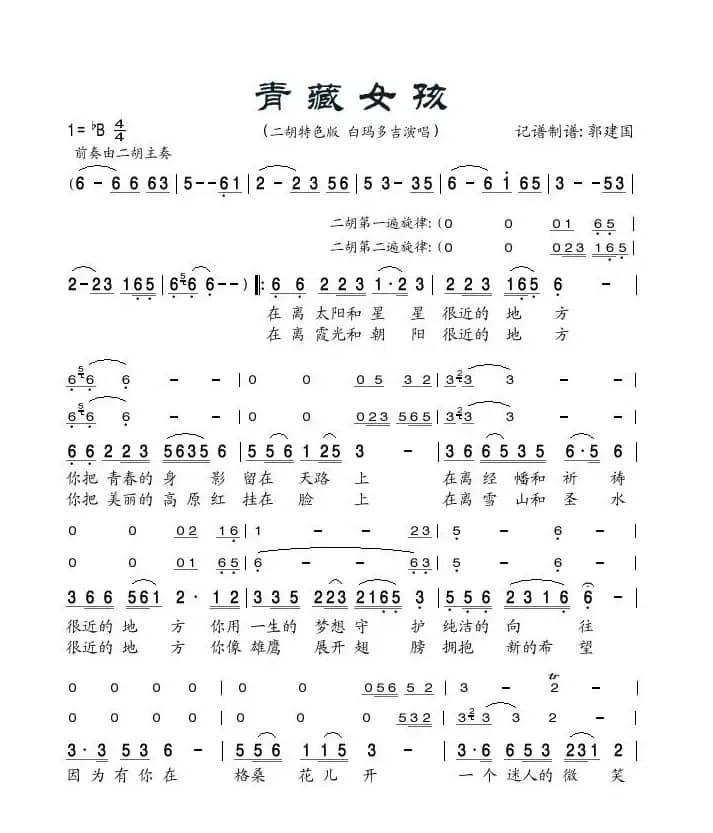 青藏女孩
1= ♭B 4/4 (二胡特色版 白玛多吉演唱) 记谱制谱: 郭建国
前奏由二胡主奏
(6 - 6 6 63 | 5 - - 61 | 2 - 2 3 56 | 5 3 - 35 | 6 - 6 i 65 | 3 - - 53 |
二胡第一遍旋律: (0 0 01 65 |
二胡第二遍旋律: (0 0 023 165 |
2 - 23 165 | 656 6 - - ) ‖: 6 6 2 2 3 1·23 | 2 2 3 165 6 - |
在离 太阳和 星 星 很近的 地 方
在离 霞光和 朝 阳 很近的 地 方
656 6 - - | 0 0 05 32 | 323 3 - - |
656 6 - - | 0 0 023 565 | 323 3 - - |
6 6 2 2 3 5635 6 | 5 5 6 1 25 3 - | 3 6 6 5 3 5 6·5 6 |
你把 青春的 身 影 留在 天路 上 在离 经 幡和 祈 祷
你把 美丽的 高 原 红 挂在 脸 上 在离 雪 山和 圣 水
0 0 02 16 | 1 - - 23 | 5 - 6 - |
0 0 01 65 | 6 - - 63 | 5 - 6 - |
3 6 6 561 2· 12 | 3 3 5 223 2165 3 | 5 5 6 2 3 1 6 6 - |
很近的 地 方 你用 一生的 梦想 守 护 纯洁的 向 往
很近的 地 方 你像 雄鹰 展开 翅 膀 拥抱 新的希 望
0 0 0 0 | 0 0 056 52 | 3 - 2 - |
0 0 0 0 | 0 0 0 532 | 323 3 2 - |
3·3 5 3 6 - | 5 5 6 1 1 5 3 - | 3·6 6 5 3 2231 2 |
因为有你在 格桑 花儿 开 一个 迷人的 微 笑